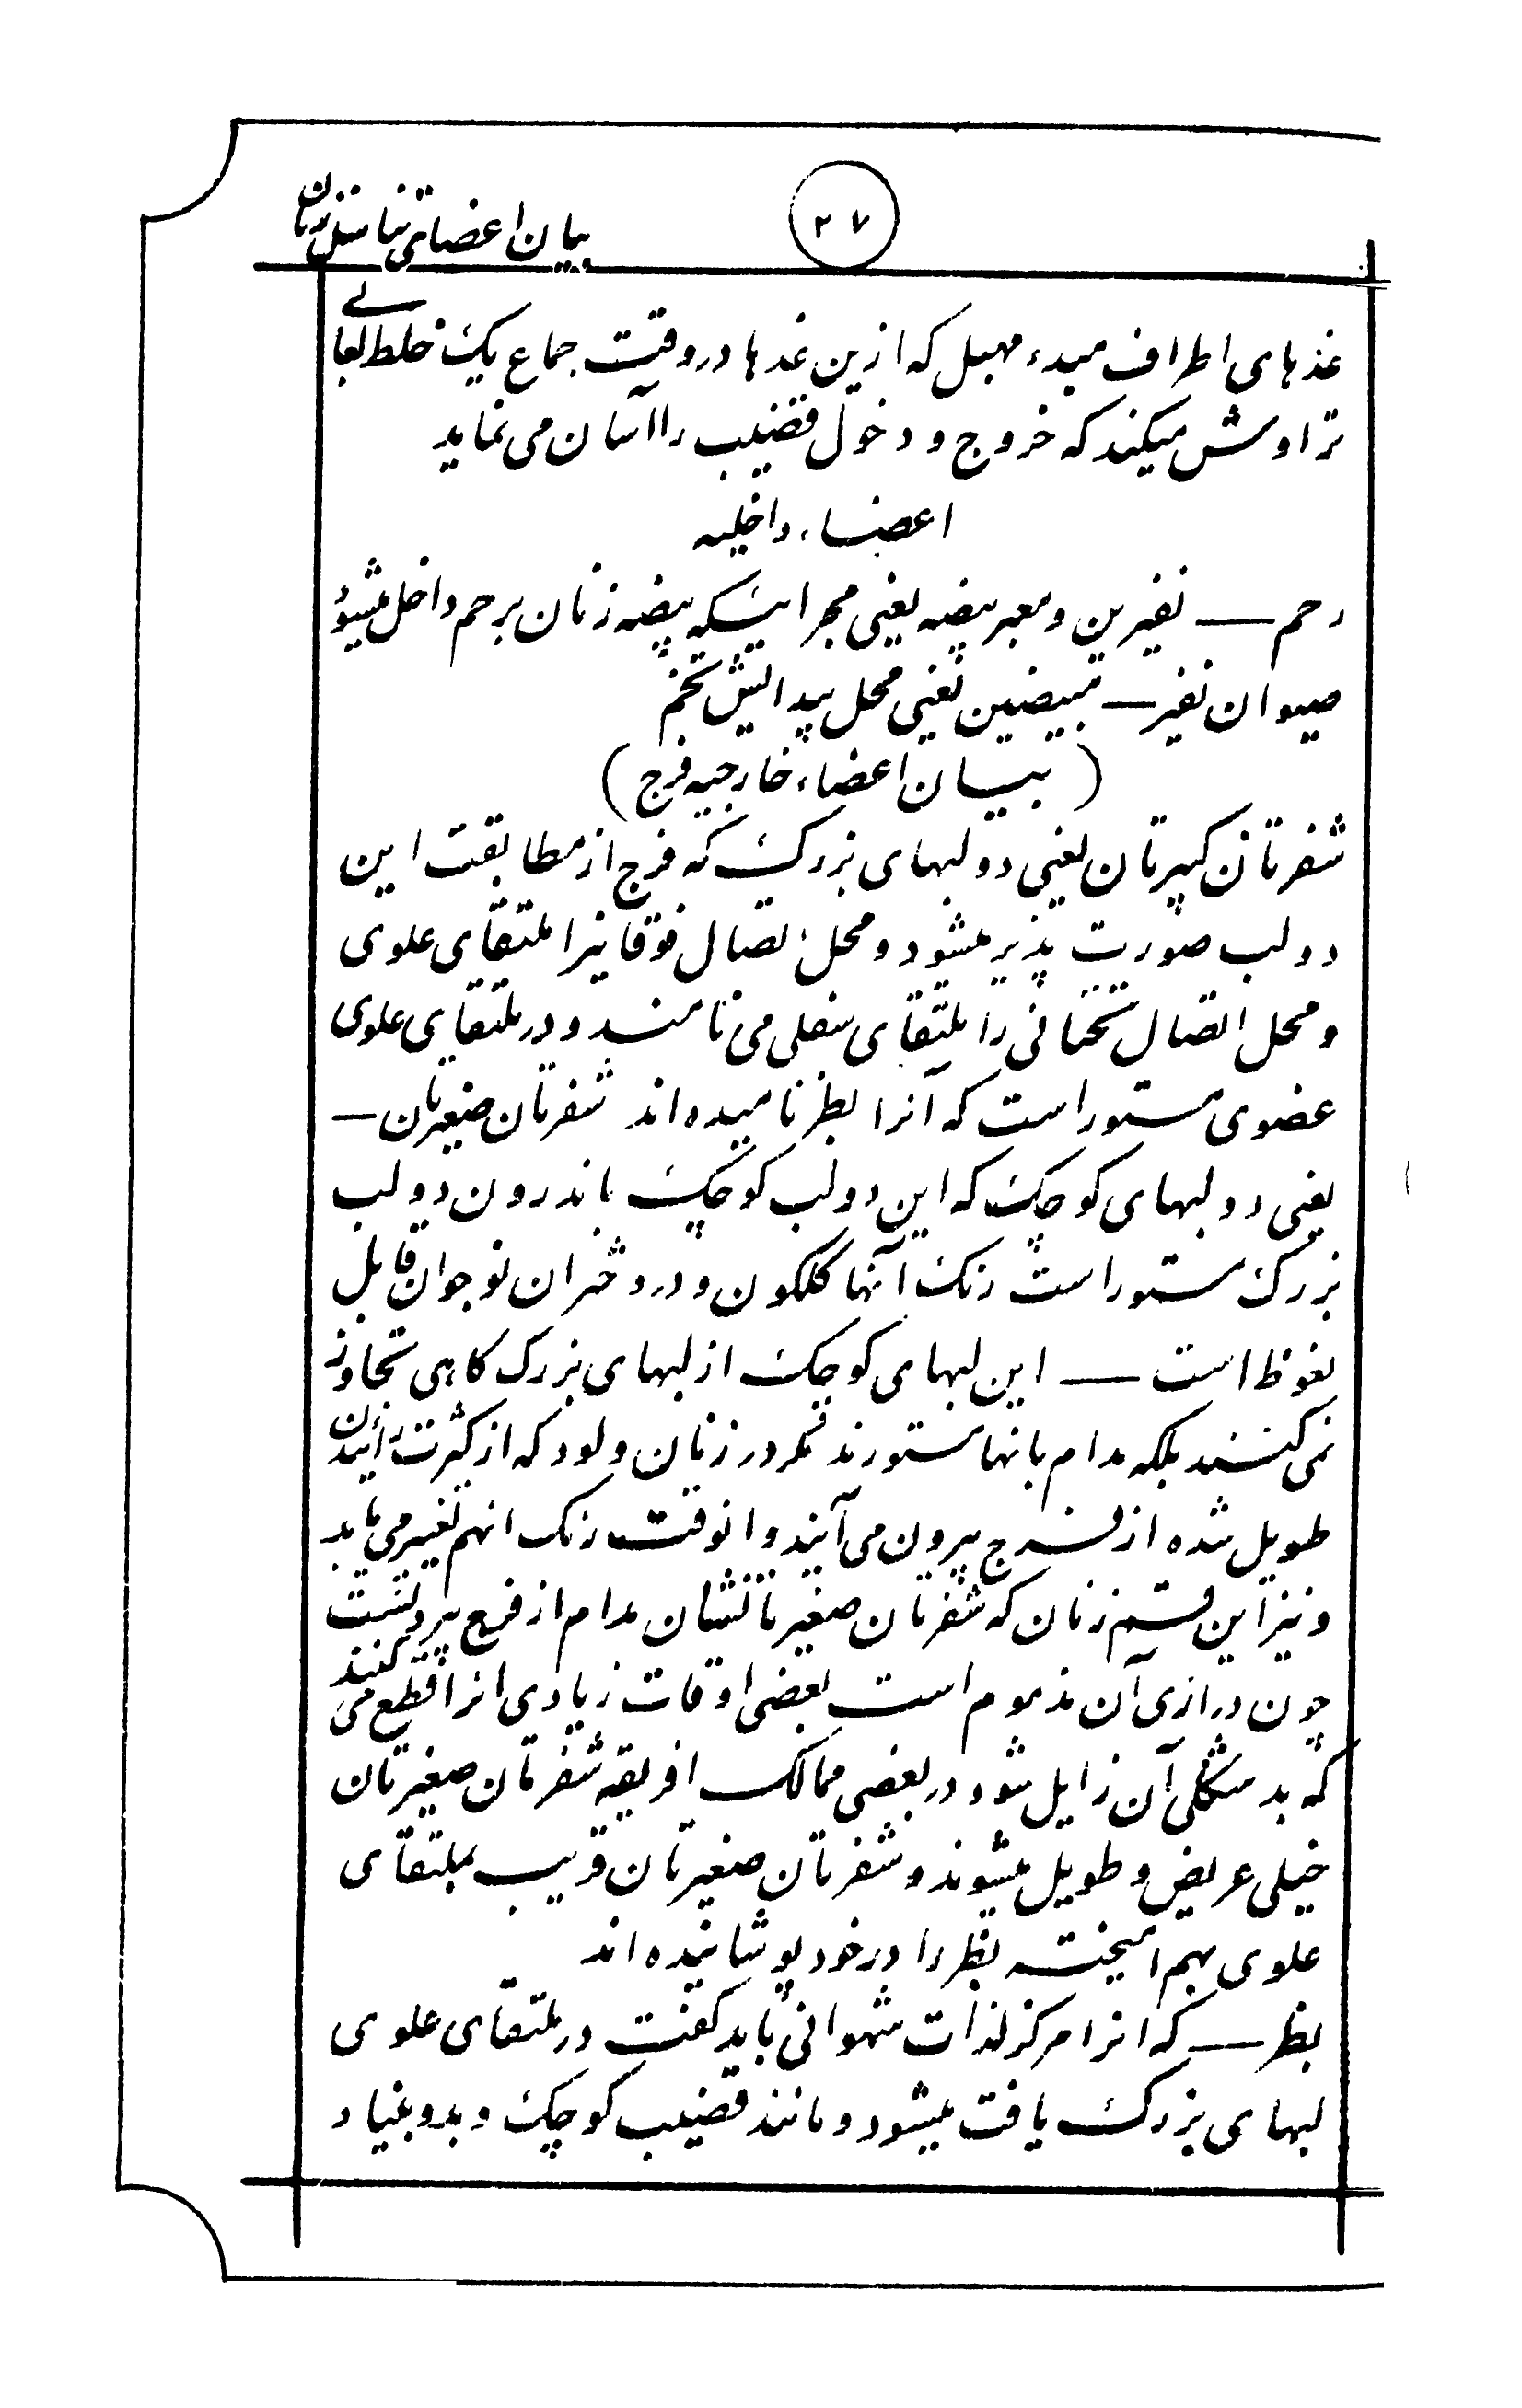 ۲۷
بیان اعضای تناسل زنان
غدهای اطراف مبدء مهبل که ازین غدها در وقت جماع یک خلط لعابی
تراوش میکند که خروج و دخول قضیب را آسان می نماید
اعضاء داخلیه
رحم — نفیرین و معبر بیضه یعنی مجرائیکه بیضه زنان برحم داخل میشود
صیوان نفیر — مبیضین یعنی محل پیدایش تخم
( بیان اعضاء خارجیه فرج )
شفرتان کبیرتان یعنی دو لبهای بزرک که فرج از مطابقت این
دو لب صورت پذیر میشود و محل اتصال فوقانیرا ملتقای علوی
و محل اتصال تحتانی را ملتقای سفلی می نامند و در ملتقای علوی
عضوی مستور است که آنرا بظر نامیده اند شفرتان صغیرتان —
یعنی دو لبهای کوچک که این دو لب کوچک باندرون دو لب
بزرک مستور است رنک آنها کلکون و در دختران نوجوان قابل
نعوظ است — این لبهای کوچک از لبهای بزرک کاهی تجاوز
نمی کنند بلکه مدام بانها مستورند مکر در زنان ولود که از کثرت زائیدن
طویل شده از فرج بیرون می آیند و انوقت رنک انهم تغییر می یابد
و نیز این قسم زنان که شفرتان صغیرتانشان مدام از فرج بیرونست
چون درازی آن مذموم است بعضی اوقات زیادی انرا قطع می کنند
که بد شکلی آن زایل شود در بعضی ممالک افریقه شفرتان صغیرتان
خیلی عریض و طویل میشوند و شفرتان صغیرتان قریب بملتقای
علوی بهم امیخته بظر را در خود پوشانیده اند
بظر — که انرا مرکز لذات شهوانی باید کفت در ملتقای علوی
لبهای بزرک یافت میشود و مانند قضیب کوچک و بدو بنیاد